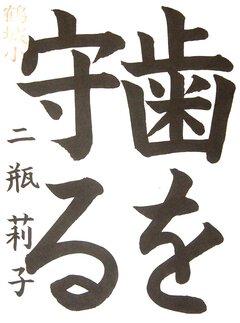 歯を
守る
鶴城小
二瓶莉子